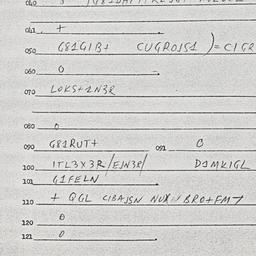 040
041 +
050 G81GIB+ CUGROJS1 )= CIGR
060 0
070 LOKS+1N3R
080 0
090 G81RUT+ 091 0
100 ITL3X3R/EJN3R/ D1MKIGL
101 G1FELN
110 + QGL CIBAJSN NUX BRO+FM7
120 0
121 0